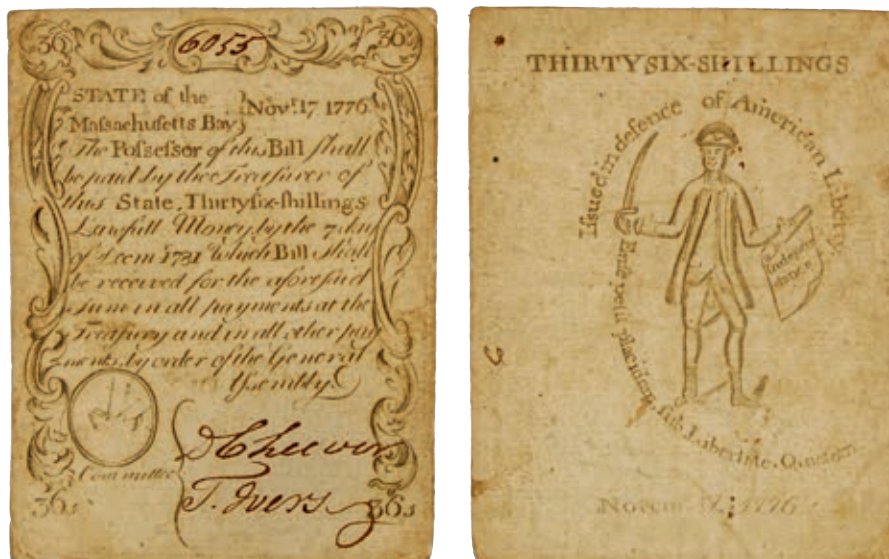 36s 6055 36s
STATE of the
Massachusetts Bay } Novr. 17 1776
The Possessor of this Bill shall
be paid by the Treasurer of
this State, Thirtysix-shillings
Lawfull Money, by the 7 day
of Decem 1781 Which Bill shall
be received for the aforesaid
sum in all payments at the
Treasury and in all other pay
ments, by order of the General
Assembly.
Committee
D Cheever
T. Ivers
36s 36s
THIRTYSIX-SHILLINGS
Issued in defence of American Liberty.
Ense petit placidam, sub Libertate Quietem
Independ
dance
Novem 17, 1776